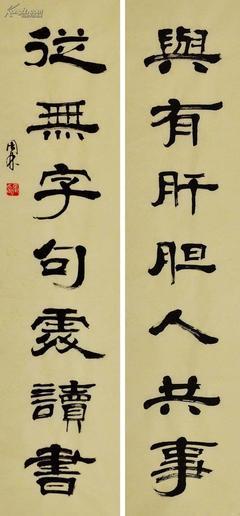 與有肝胆人共事
從無字句處讀書